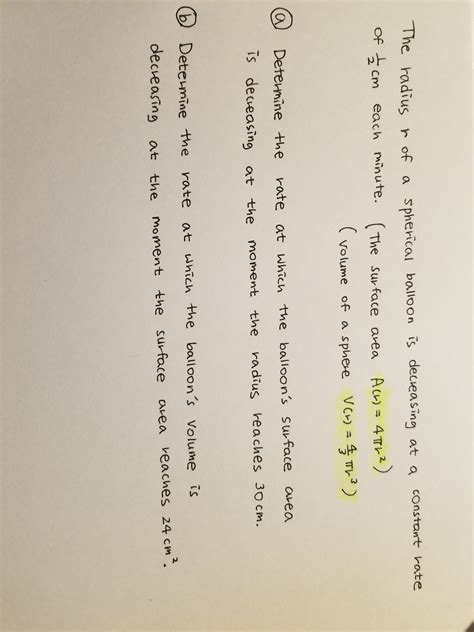 The radius r of a spherical balloon is decreasing at a constant rate
of 1/2 cm each minute. (The surface area A(r) = 4πr²)
(Volume of a sphere V(r) = 4/3 πr³)
ⓐ Determine the rate at which the balloon's surface area
is decreasing at the moment the radius reaches 30 cm.
ⓑ Determine the rate at which the balloon's volume is
decreasing at the moment the surface area reaches 24 cm².